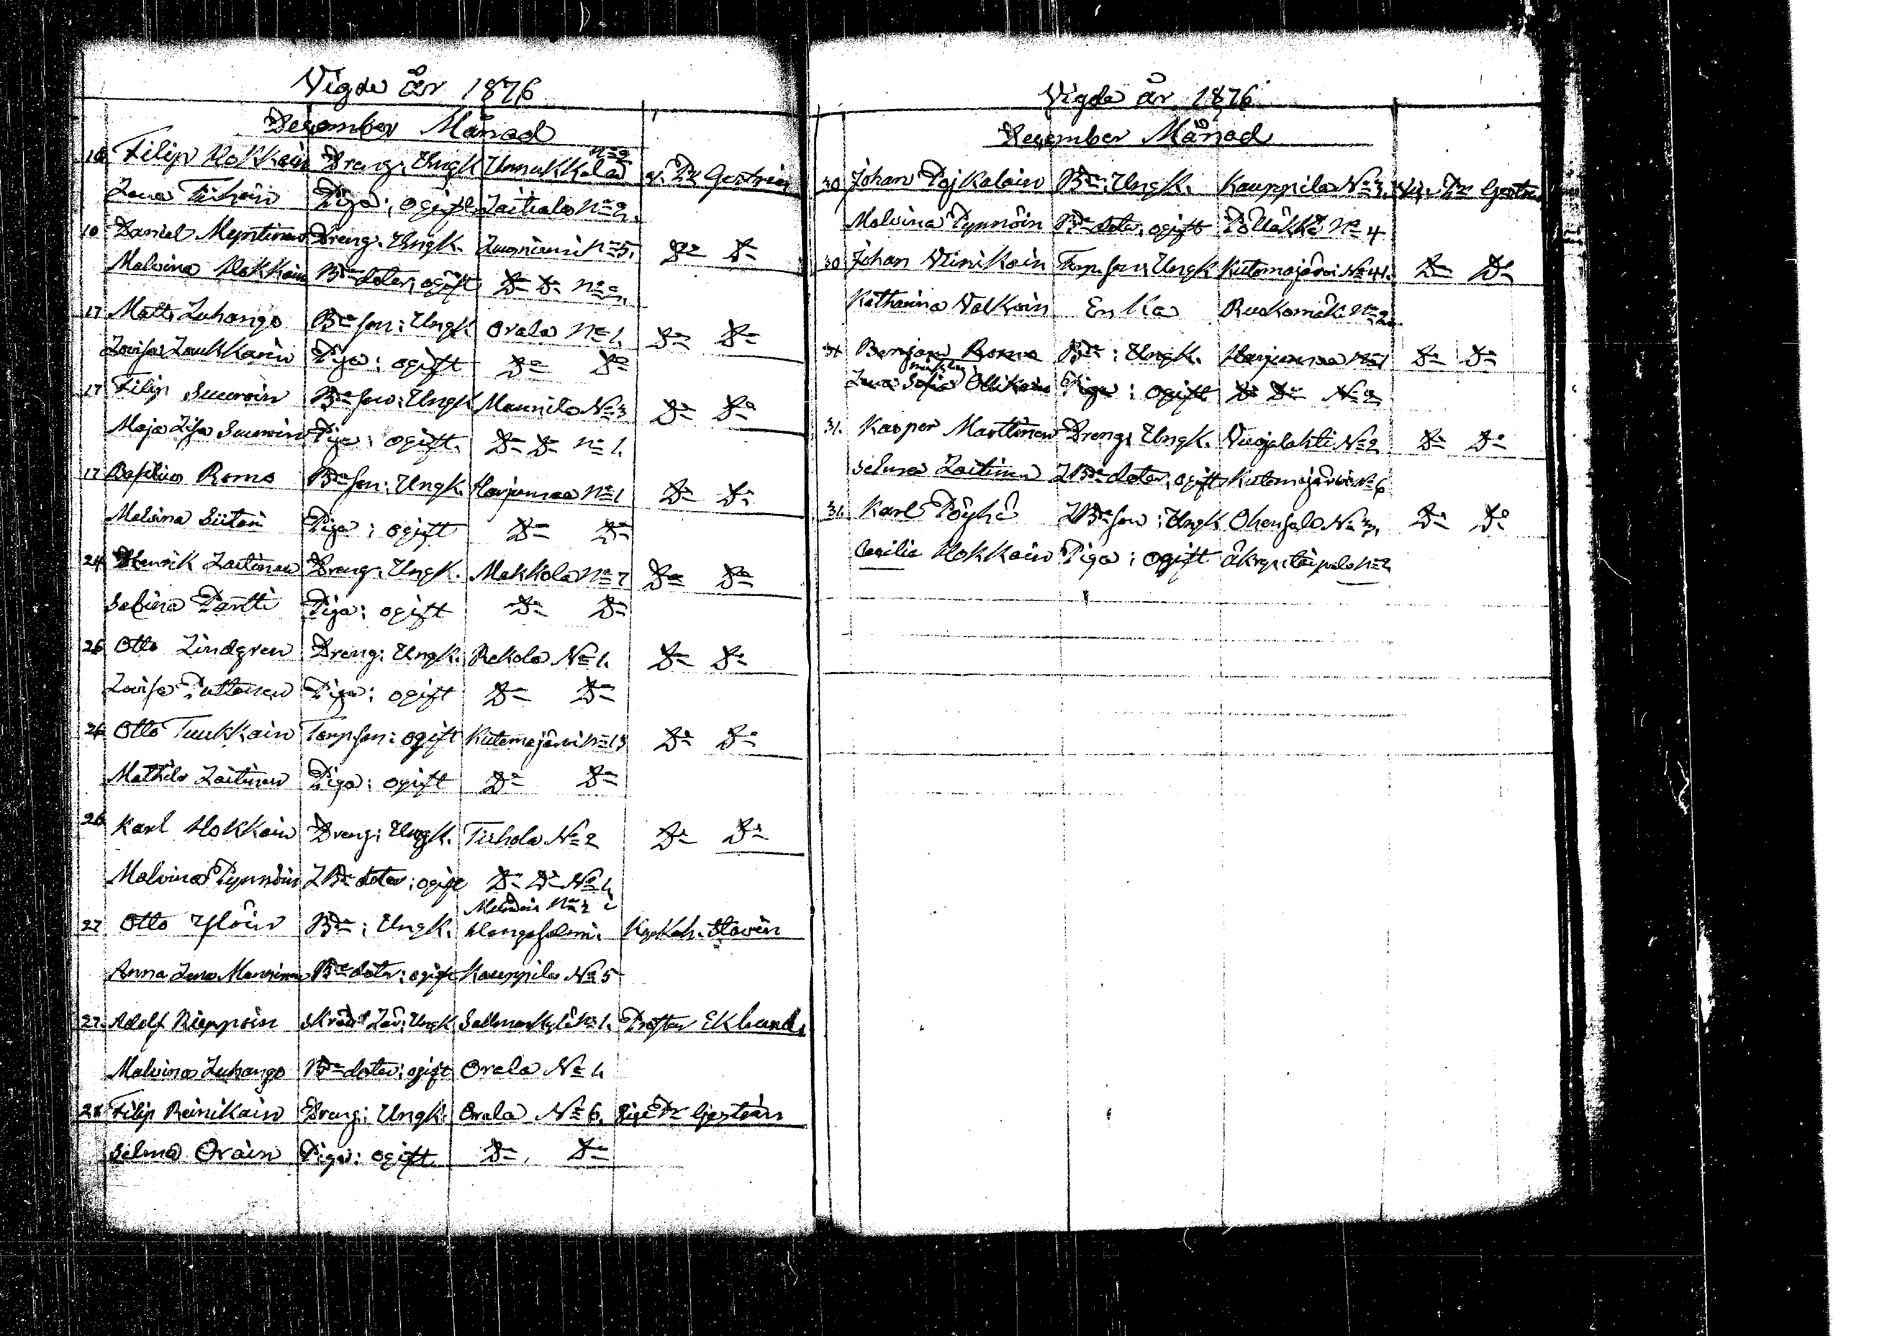 Vigde år 1876
December Månad
10 Filip Hokkain Dreng: Ungk. Unnukkala No 2 v. Pr Gestrin
Lena Tiihoin Piga: ogift Laitiala No 2.
10 Daniel Dreng: Ungk. No 5. Do Do
Malvina Hokkain Bde doter: ogift Do Do No
17 Matts Luhango Bde son: Ungk Orala No 1. Do Do
Lovisa Laukkarin Piga: ogift Do Do
17 Filip Suuroin Bde son: Ungk Maunila No 3 Do Do
Maja Lisa Piga: ogift. Do Do No 1.
17 Basilius Romo Bde son: Ungk. Harjumaa No 1 Do Do
Malvina Siitoin Piga: ogift Do Do
24 Henrik Laitinen Dreng: Ungk. Makkola No 7 Do Do
Sabina Pantti Piga: ogift Do Do
26 Otto Lindgren Dreng: Ungk. Rekola No 1. Do Do
Lovisa Puttonen Piga: ogift Do Do
26 Otto Tuukkain Torp.son: ogift Kutemajärvi No 13 Do Do
Mathilda Laitinen Piga: ogift Do Do
26 Karl Hokkain Dreng: Ungk. Tiihola No 2 Do Do
Malvina Pynnöin LBde doter: ogift Do Do No 1.
No 2 i
27 Otto Ylöin Bde: Ungk. Kangasniemi. Kyrkoh. Hovén
Anna Lena Manninen Bde doter: ogift Kauppila No 5
27. Adolf Rieppoin Skrädd Lär: Ungk. No 1. Prosten Eklund.
Malvina Luhango Bde doter: ogift Orala No 1.
28 Filip Reinikain Dreng: Ungk: Orala No 6. Vice Pr Gestrin
Selma Orain Piga: ogift. Do. Do
Vigde år 1876
December Månad
30 Johan Pojkolain Bde: Ungk. Kauppila No 3. Vi. Pr Gestrin
Malvina Pynnöin Bde doter: ogift Pölläkkä No 4
30 Johan Vinikain Torp. son: Ungk Kutemajärvi No 41. Do Do
Katharina Valkoin Enka Ruokomäki No 2.
31 Benjam Romo Bde: Ungk. Harjumaa No 1 Do Do
Lena Sofia Ollikain Piga: ogift Do Do No 2
31. Kasper Marttinen Dreng: Ungk. Vuojalahti No 2 Do Do
Selma Laitinen LBde doter: ogift Kutemajärvi No 6
31. Karl Pöyhö LBde son: Ungk Ohensalo No 3. Do Do
Cecilia Hokkain Piga: ogift No 2